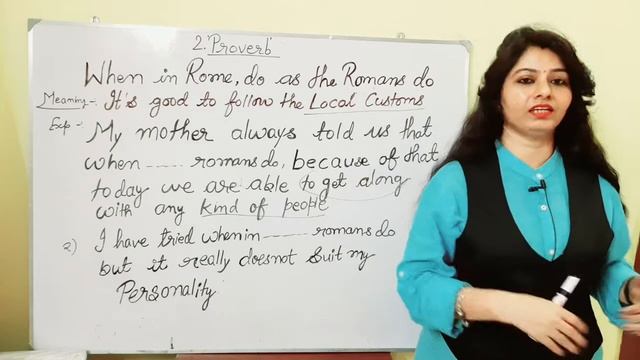 2. Proverb
When in Rome, do as the Romans do
Meaning:- It's good to follow the Local Customs
Exp:- My mother always told us that
when ...... romans do, because of that
today we are able to get along
with any kind of people
2) I have tried when in ....... romans do
but it really doesnot suit my
Personality